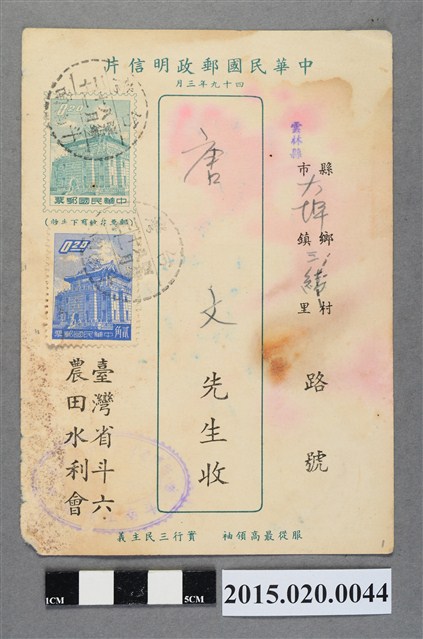 中華民國郵政明信片
四十九年三月
雲林縣
縣
市
大埤
鄉
鎮
三結
村
里
路 號
唐 文 先生收
0.20
中華民國郵票
0.20
貳角
中華民國郵票
臺灣省斗六
農田水利會
服從最高領袖 實行三民主義
1CM
5CM
2015.020.0044